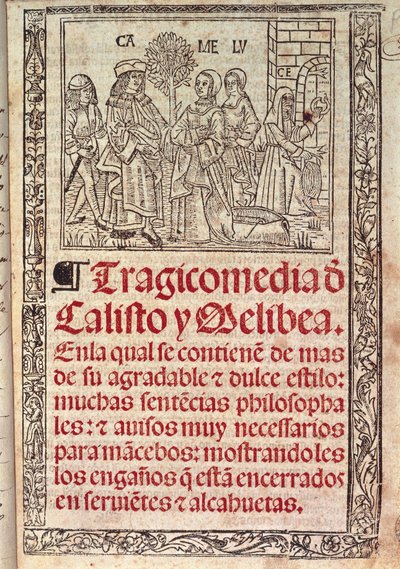 CA ME LU
CE
¶ Tragicomedia đ
Calisto y Melibea.
Enla qual se contienẽ de mas
de su agradable ⁊ dulce estilo:
muchas sentẽcias philosopha
les: ⁊ auisos muy necessarios
para mãcebos: mostrandoles
los engaños q̃ estã encerrados
en seruiẽtes ⁊ alcahuetas.